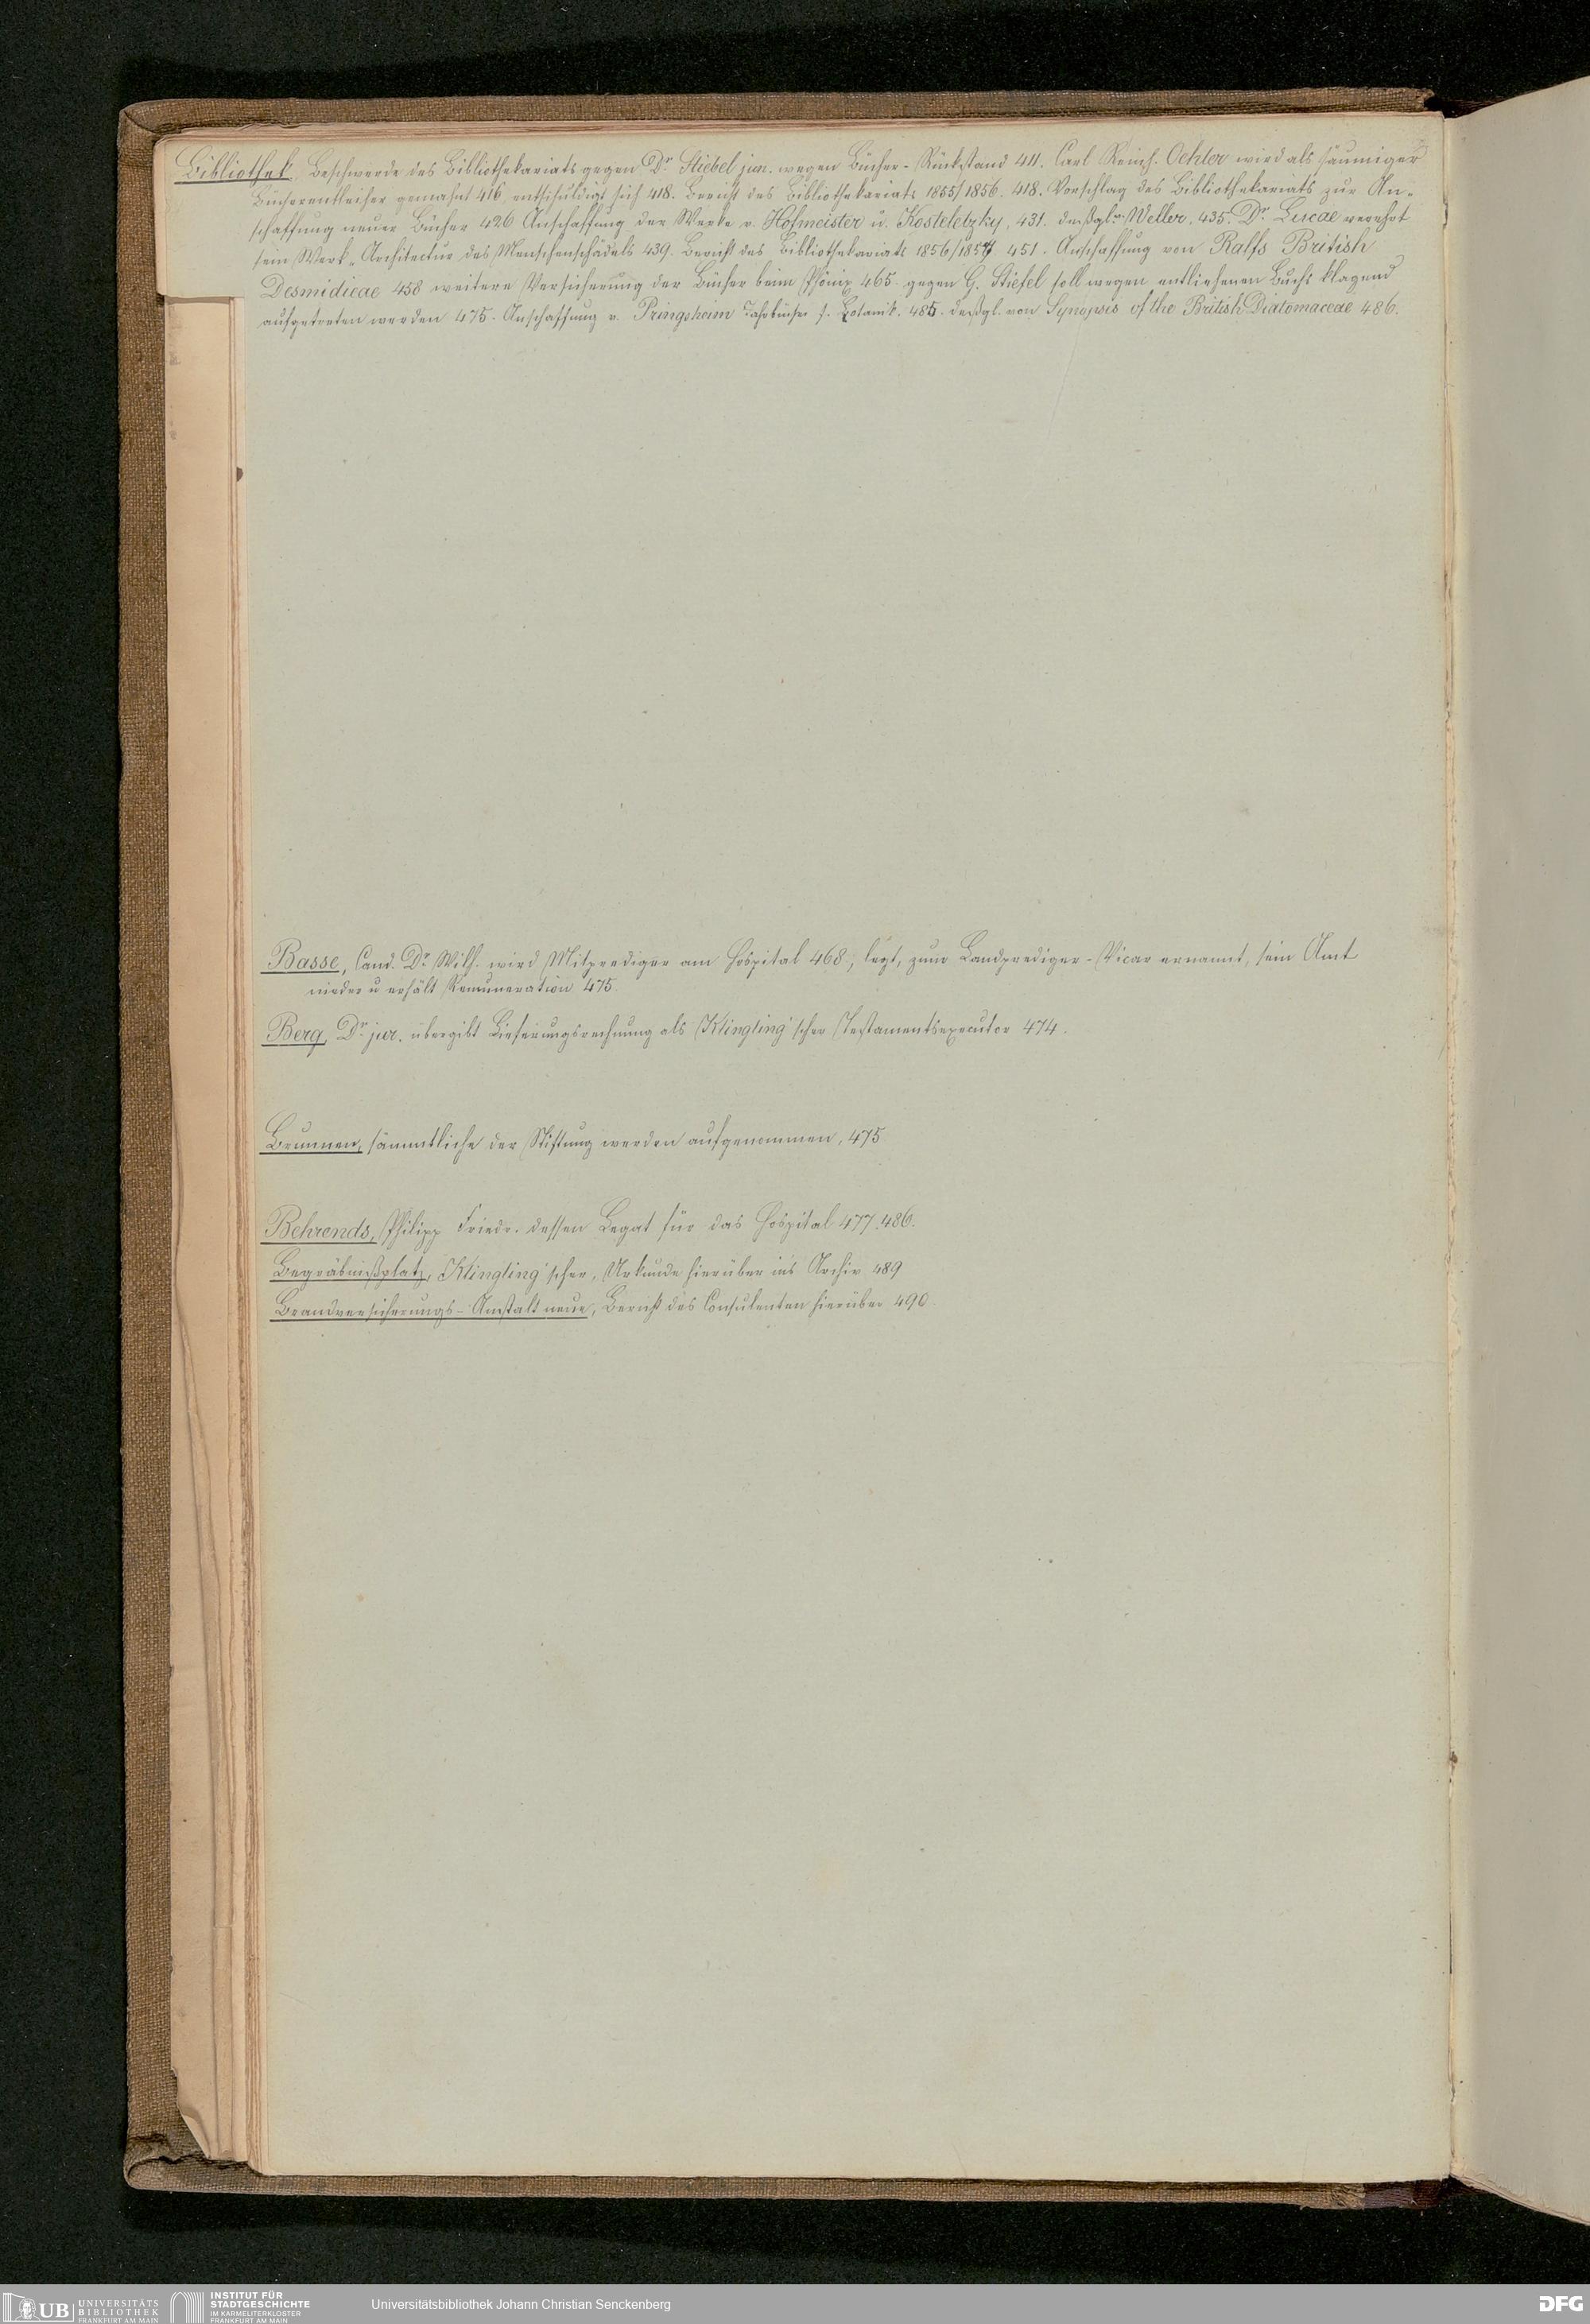 Bibliothek, Beschwerde des Bibliothekariats gegen Dr Stiebel jun. wegen Bücher-Rückstand 411. Carl Reinh. Oehler wird als säumiger
Bücherentleiher gemahnt 416, entschuldigt sich 418. Bericht des Bibliothekariats 1855/1856. 418. Vorschlag des Bibliothekariats zur An-
schaffung neuer Bücher 426 Anschaffung der Werke v. Hofmeister u. Kosteletzky, 431. deßgl. Weller. 435. Dr Lucae verehrt
sein Werk Architectur des Menschenschädels 439. Bericht des Bibliothekariats 1856/1857 451. Anschaffung von Ralfs British
Desmidieae 458 weitere Versicherung der Bücher beim Phönix 465 gegen G. Stiefel soll wegen entliehenen Buchs klagend
aufgetreten werden 475. Anschaffung v. Pringsheim Jahrbücher f. Botanik. 485. deßgl. von Synopsis of the British Diatomaceae 486.
Basse, Cand. Dr Wilh. wird Mitprediger am Hospital 468; legt, zum Landprediger-Vicar ernannt, sein Amt
nieder u erhält Remuneration 475.
Berg, Dr jur. übergibt Lieferungsrechnung als Klingling'scher Testamentsexecutor 474.
Brunnen, sämmtliche der Stiftung werden aufgenommen, 475
Behrends, Philipp Friedr. dessen Legat für das Hospital 477. 486.
Begräbnißplatz, Klingling'scher, Urkunde hierüber ins Archiv 489
Brandversicherungs-Anstalt neue, Bericht des Consulenten hierüber 490.
UB UNIVERSITÄTS
BIBLIOTHEK
FRANKFURT AM MAIN
INSTITUT FÜR
STADTGESCHICHTE
IM KARMELITERKLOSTER
FRANKFURT AM MAIN
Universitätsbibliothek Johann Christian Senckenberg
DFG